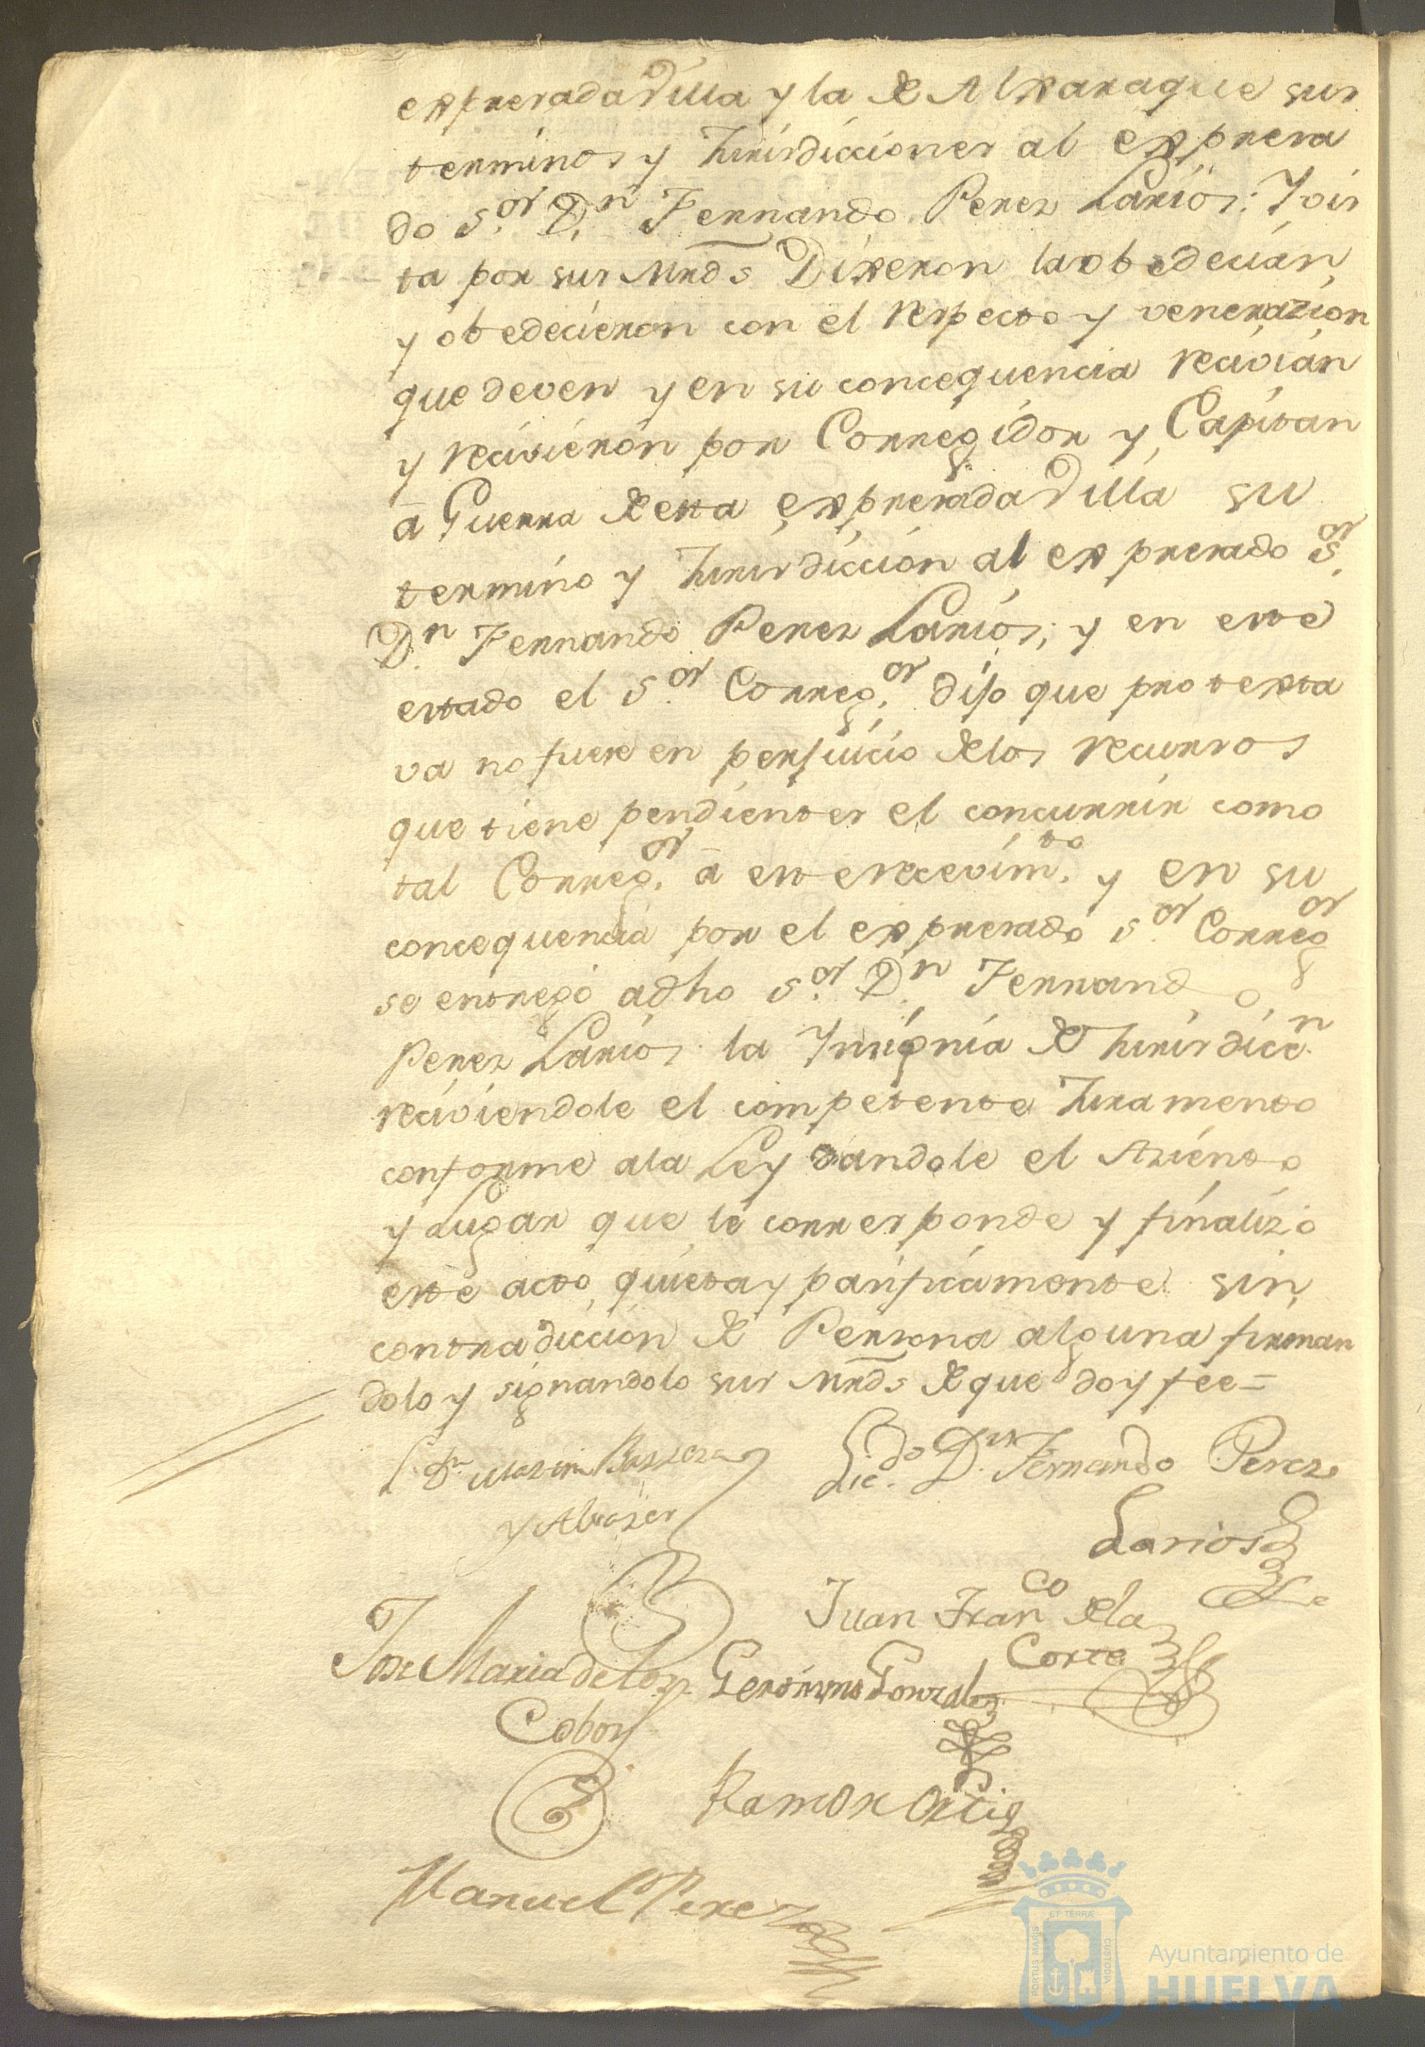 expresada Villa y la de Alxaraque sus
terminos y Jurisdicciones al expresa
do S.or D.n Fernando Perez Larios: Y ois
ta por sus Mrds Dixeron la obedecian
y obedecieron con el respecto y venerazion
que deven y en su concequencia recivian
y recivieron por Corregidor y Capitan
a Guerra de esta expresada Villa su
termino y Jurisdiccion al expresado S.or
D.n Fernando Perez Larios; y en este
estado el S.or Correg.or dijo que protexta
va no fuese en perjuicio de los recursos
que tiene pendientes el concurrir como
tal Correg.or a este recevim.to y en su
concequencia por el expresado S.or Correg.or
se entregó a dho S.or D.n Fernando
Perez Larios la Ynsignia de Jurisdicc.n
reciviendole el competente Juramento
conforme a la Ley dandole el Asiento
y Lugar que le corresponde y finalizó
este acto quieta y pasificamente sin
contradiccion de Persona alguna firman
dolo y signandolo sus Mrds de que doy fee=
L. D.n Martin Barrera
y Alcazer
Lic.do D.n Fernando Perez
Larios
Juan Fran.co de la
Corte
Jose Maria de los
Cobos
Geronimo Gonzalez
Ramon Ortiz
Manuel Perez
ET TERRÆ
CUSTODIA
PORTUS MARIS
Ayuntamiento de
HUELVA